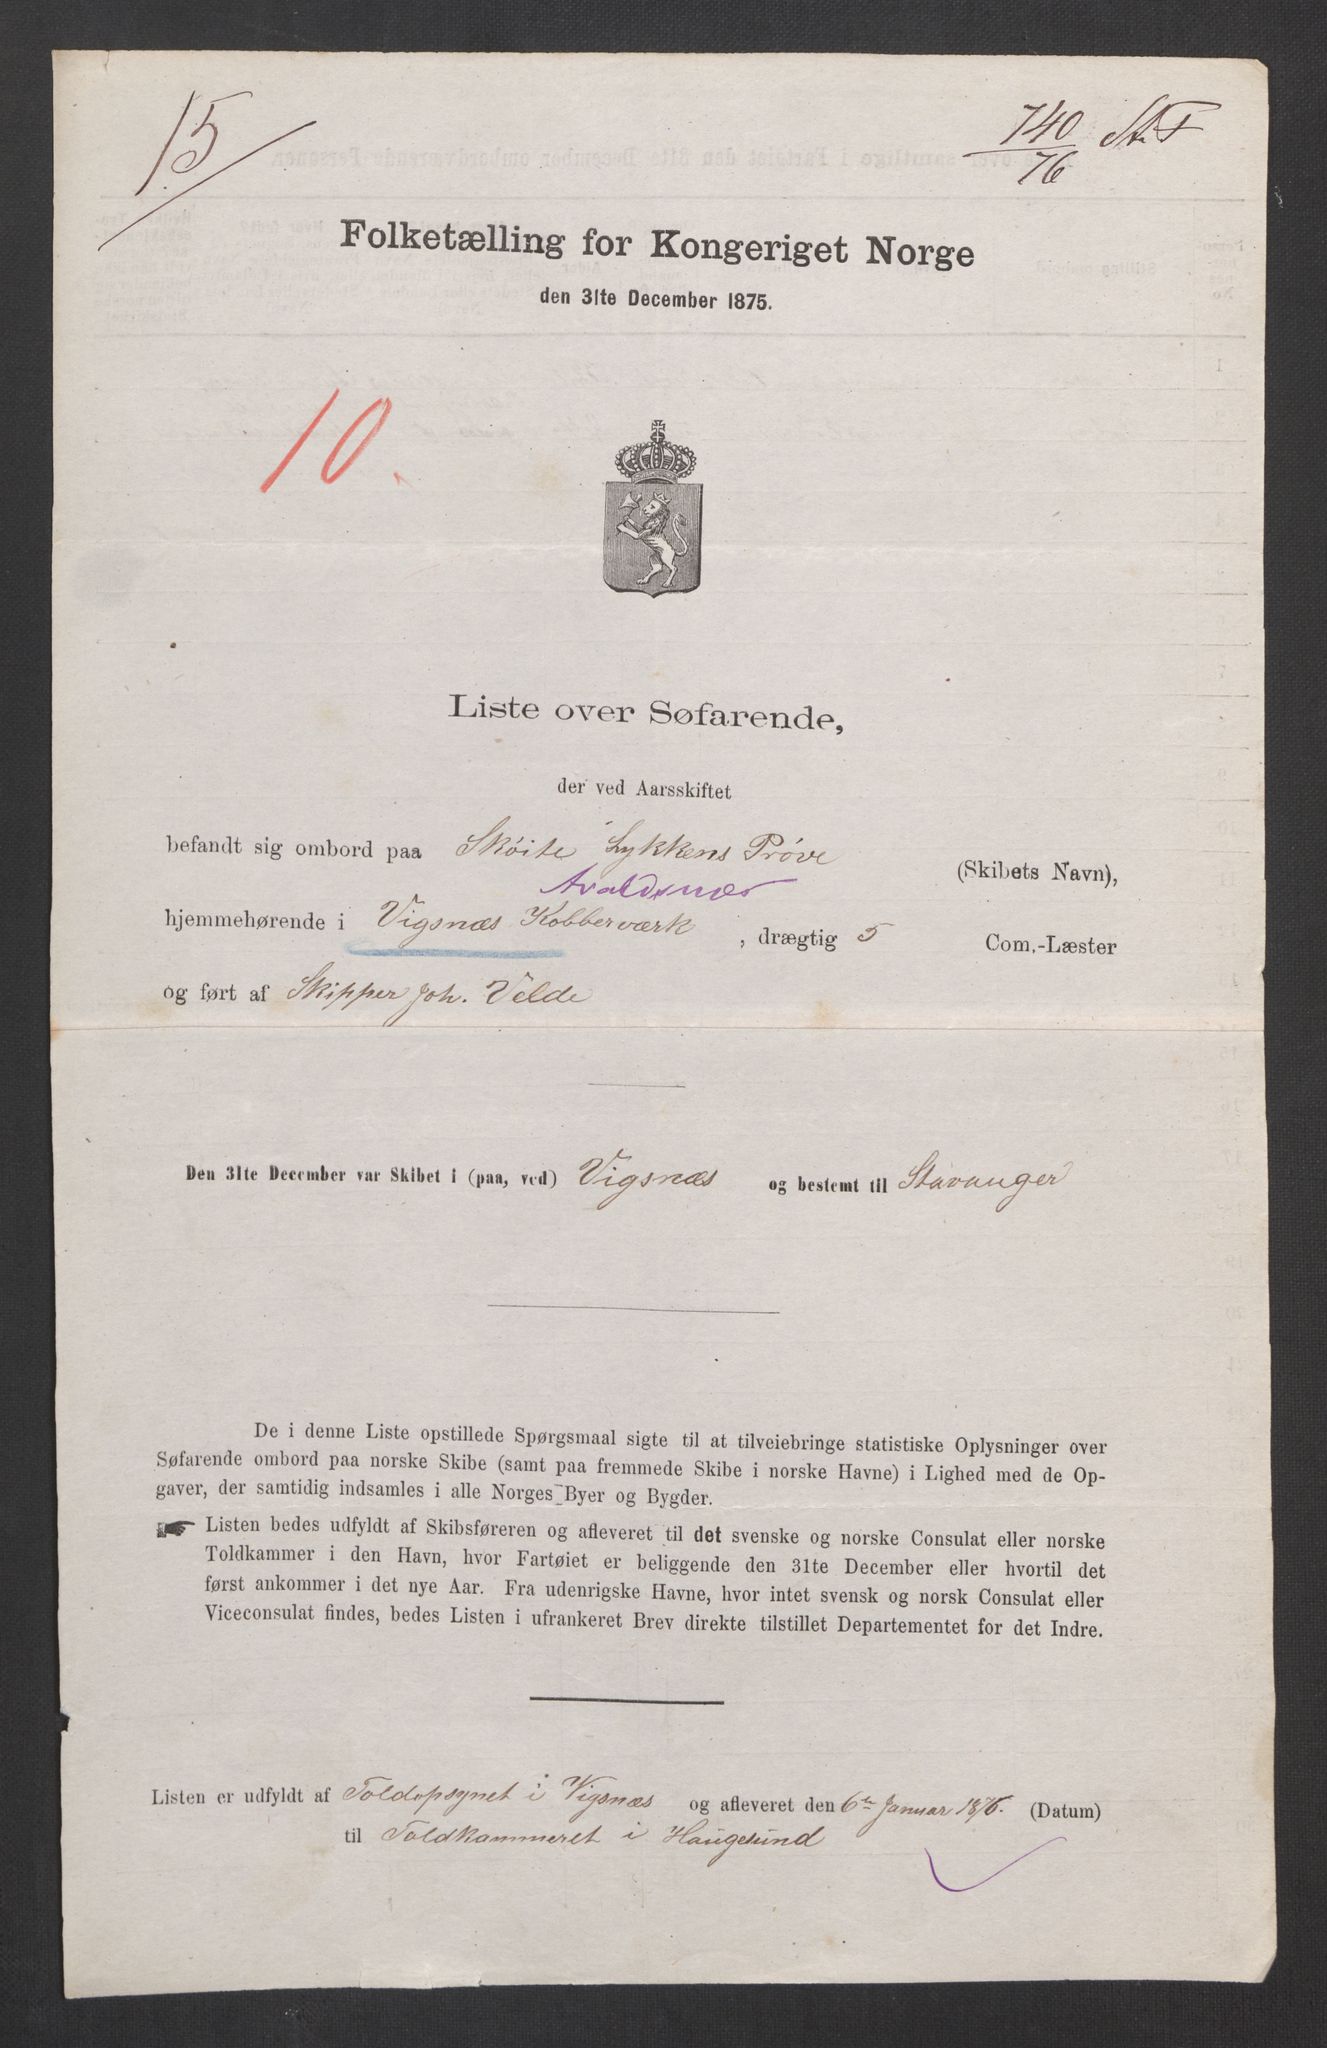 15
740
76
St. F
Folketælling for Kongeriget Norge
den 31te December 1875.
10.
Liste over Søfarende,
der ved Aarsskiftet
befandt sig ombord paa Skøite Lykkens Prøve (Skibets Navn),
Avaldsnæs
hjemmehørende i Vigsnæs Kobberværk, drægtig 5 Com.-Læster
og ført af Skipper Joh. Velde
Den 31te December var Skibet i (paa, ved) Vigsnæs og bestemt til Stavanger
De i denne Liste opstillede Spørgsmaal sigte til at tilveiebringe statistiske Oplysninger over
Søfarende ombord paa norske Skibe (samt paa fremmede Skibe i norske Havne) i Lighed med de Op-
gaver, der samtidig indsamles i alle Norges Byer og Bygder.
Listen bedes udfyldt af Skibsføreren og afleveret til det svenske og norske Consulat eller norske
Toldkammer i den Havn, hvor Fartøiet er beliggende den 31te December eller hvortil det
først ankommer i det nye Aar. Fra udenrigske Havne, hvor intet svensk og norsk Consulat eller
Viceconsulat findes, bedes Listen i ufrankeret Brev direkte tilstillet Departementet for det Indre.
Listen er udfyldt af Toldopsynet i Vigsnæs og afleveret den 6te Januar 1876. (Datum)
til Toldkammeret i Haugesund